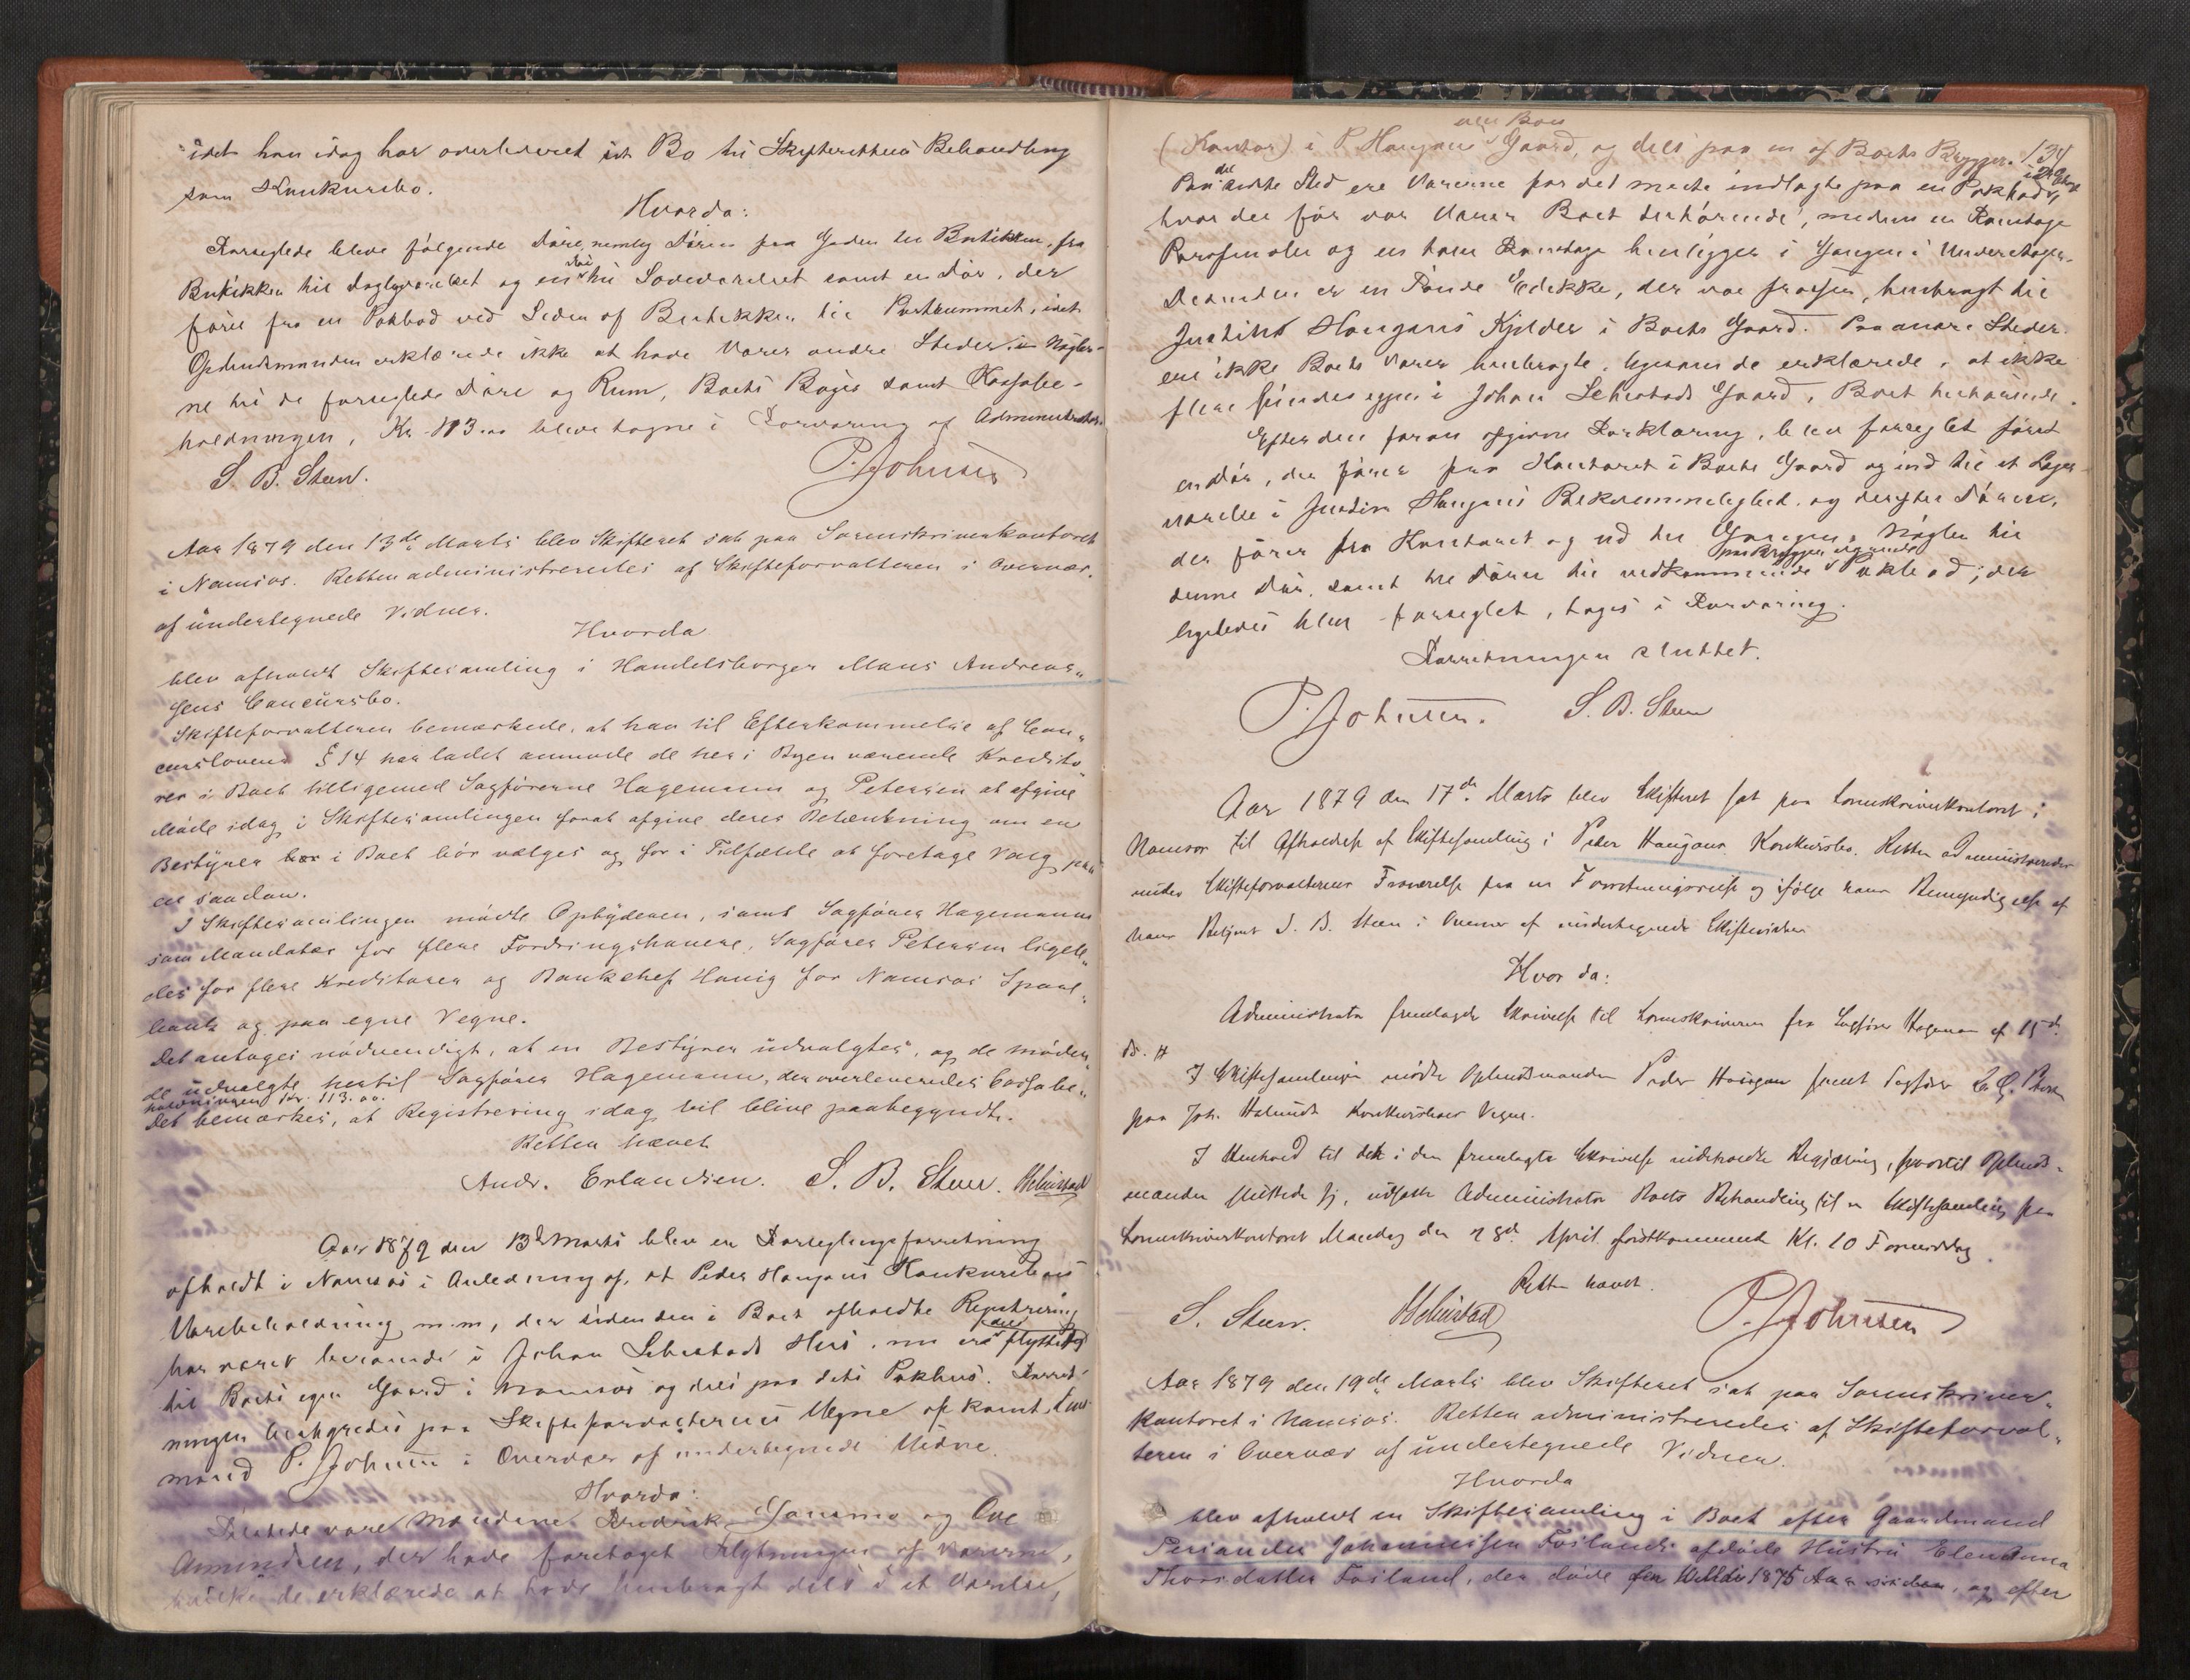 idet han idag har overleveret sit Bo til Skifterettens Behandling
som Konkursbo.
Hvorda:
Forseglede bleve følgende Døre, nemlig Døren fra Gaden til Butikken, fra
Butikken til Dagligværelset og en Dør til Soveværelset samt en Dør, der
fører fra en Pakbod ved Siden af Butikken til Portrummet, idet
Opbudsmanden erklærede ikke at have Varer andre Steder. Nøgler-
ne til de forseglede Døre og Rum, Boets Bøger samt Kassabe-
holdningen, Kr. 113.00 bleve tagne i Forvaring af Administrator.
S. B. Steen. P. Johnsen
Aar 1879 den 13de Marts blev Skifteret sat paa Sorenskriverkontoret
i Namsos. Retten administreredes af Skifteforvalteren i Overvær
af undertegnede Vidner.
Hvorda
blev afholdt Skiftesamling i Handelsborger Mans Andreas-
sens Concursbo.
Skifteforvalteren bemærkede, at han til Efterkommelse af Con-
curslovens § 14 har ladet anmode de her i Byen værende Kredito-
rer i Boet tilligemed Sagførerne Hagemann og Petersen at afgive
Møde idag i Skiftesamlingen forat afgive deres Betænkning om en
Bestyrer bør i Boet bør vælges og for i Tilfælde at foretage Valg paa
en saadan.
I Skiftesamlingen mødte Opbyderen, samt Sagfører Hagemann
som Mandatar for flere Fordringshavere, Sagfører Petersen ligele-
des for flere Kreditorer og Bankchef Havig for Namsos Spare-
bank og paa egne Vegne.
Det antoges nødvendigt, at en Bestyrer udvalgtes, og de møden-
de udvalgte hertil Sagfører Hagemann, der overleveredes Cassabe-
holdningen Kr. 113.00.
Det bemærkes, at Registrering idag vil blive paabegyndt.
Retten hævet
Andr. Erlandsen. S. B. Steen.
Aar 1879 den 13de Marts blev en Forseglingsforretning
afholdt i Namsos i Anledning af, at Peder Haugans Konkursboes
Varebeholdning m.m, der siden den i Boet afholdte Registrering
har været beroende i Johan Sehestads Hus, nu er flyttet
til Boets egen Gaard i Namsos og dels paa dets Pakhus. Forret-
ningen besørgedes paa Skifteforvalterens Vegne af konst. Lens-
mand P. Johnsen i Overvær af undertegnede Vidne.
Hvorda:
Tilstede vare Mændene Fredrik Sansmo og Ove
Amundsen, der havde foretaget Flytningen af Varerne,
hvilke de erklærede at have henbragt dels i et Værelse,
134
(Kontor) i P. Haugans Gaard, og dels paa en af Boets Brygger.
Paa det sidste Sted ere Varerne for det meste indlagte paa en Pakbod,
hvor der før var Varer Boet tilhørende, medens en Femtage
og en halv henligger i Gangen i Underetagen.
Desuden er en Tønde Eddikke, der var frossen, henbragt til
Justine Haugans Kjelder i Boets Gaard. Paa andre Steder
ere ikke Boets Varer henbragte, ligesom de erklærede, at ikke
flere findes igjen i Johan Sehestads Gaard, Boet tilhørende.
Efter den foran afgivne Forklaring, blev forseglet først
en Dør, der fører fra Kontoret i Boets Gaard og ind til et Lager-
værelse i Justine Haugans Bekvemmelighed, og dernæst Døren,
der fører fra Kontoret og ud til Gangen. Nøglen til
denne Dør, samt tre Døren til vedkommende paa Bryggen Pakbod, der
ligeledes blev forseglet, toges i Forvaring.
Forretningen sluttet.
P. Johnsen. S. B. Steen
Aar 1879 den 17de Marts blev Skifteret sat paa Sorenskriverkontoret i
Namsos til Afholdelse af Skiftesamling i Peder Haugans Konkursbo. Retten administreredes
under Skifteforvalterens Fraværelse paa en Forretningsreise og ifølge hans Bemyndigelse af
hans Betjent S. B. Steen i Overvær af undertegnede Skiftevidner
Hvor da:
Administrator fremlagde Skrivelse til Sorenskriveren fra Sagfører Hageman af 15de
I Skiftesamlingen mødte Opbudsmanden Peder Haugan samt Sagfører
paa Joh. Konkursboes Vegne.
I Henhold til det i den fremlagte Skrivelse indeholdte Begjæring, hvortil Opbuds-
manden sluttede sig, udsatte Administrator Boets Behandling til en Skiftesamling paa
Sorenskriverkontoret Mandag den 28de April førstkommende Kl. 10 Formiddag.
Retten hævet.
S. Steen. P. Johnsen
Aar 1879 den 19de Marts blev Skifteret sat paa Sorenskriver-
kontoret i Namsos. Retten administreredes af Skifteforval-
teren i Overvær af undertegnede Vidner.
Hvorda
blev afholdt en Skiftesamling i Boet efter Gaardmand
Periander Johannissen Fosland's afdøde Hustru Elen Anna
Thorsdatter Fosland, der døde 1875 og efter